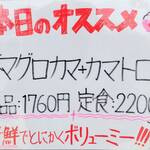 本日のオススメ
マグロカマ+カマトロ
品:1760円、定食:2200
鮮でとにかくボリューミー!!!